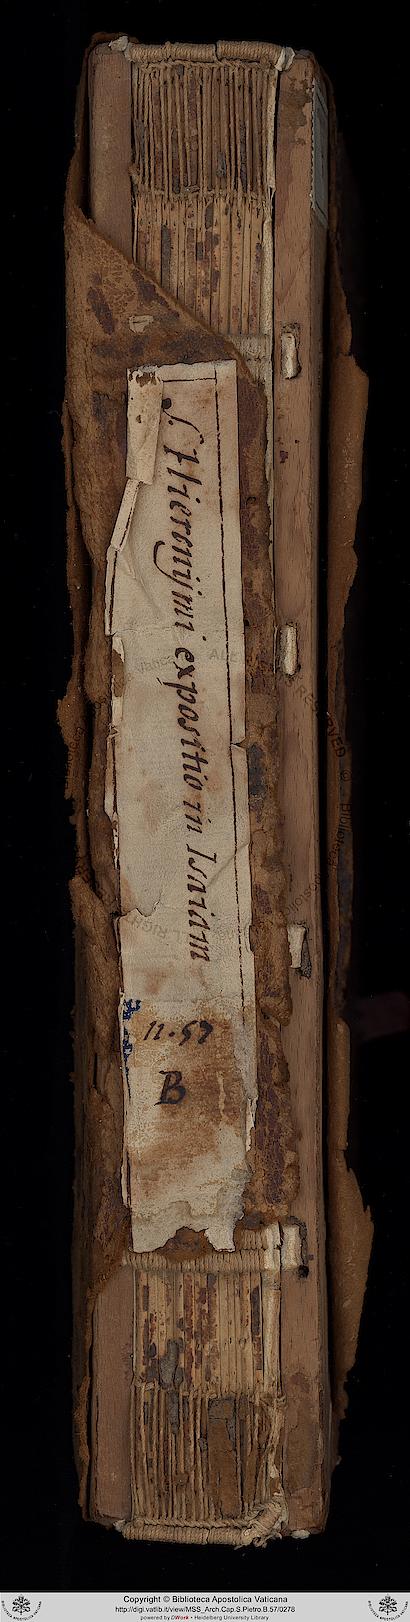 S. Hieronymi expositio in Isaiam
11.57
B
Copyright © Biblioteca Apostolica Vaticana
http://digi.vatlib.it/view/MSS_Arch.Cap.S.Pietro.B.57/0278
powered by DWork - Heidelberg University Library